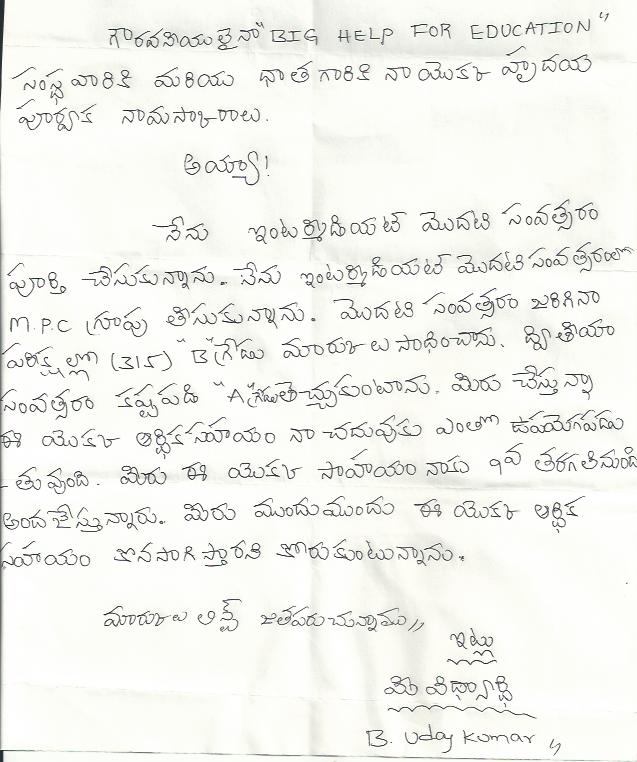 గౌరవనియులైనా "BIG HELP FOR EDUCATION"
సంస్థవారికి మరియు ధాతగారికి నాయొక్క హృదయ
పూర్వక నామస్కారాలు.
అయ్యా!
నేను ఇంటర్మిడియట్ మొదటి సంవత్సరం
పూర్తి చేసుకున్నాను. నేను ఇంటర్మిడియట్ మొదటి సంవత్సరంలో
M.P.C గ్రూపు తీసుకున్నాను. మొదటి సంవత్సరం జరిగినా
పరిక్షల్లో (315) "B" గ్రేడు మార్కులు సాధించాను. ద్వితియా
సంవత్సరం కష్టపడి "A" గ్రేడుతెచ్చుకుంటాను. మిరు చేస్తున్నా
ఈ యొక్క ఆర్థికసహాయం నా చదువుకు ఎంతో ఉపయోగపడు
-తువుంది. మీరు ఈ యొక్క సాహయం నాకు 9వ తరగతినుండి
అందజేస్తున్నారు. మిరు ముందుముందు ఈ యొక్క ఆర్థిక
సహాయం కొనసాగిస్తారని కోరుకుంటున్నాను.
మార్కులు లిస్ట్ జతపరుచున్నాము//
ఇట్లు
మీ విధ్యార్థి
B. Uday Kumar //